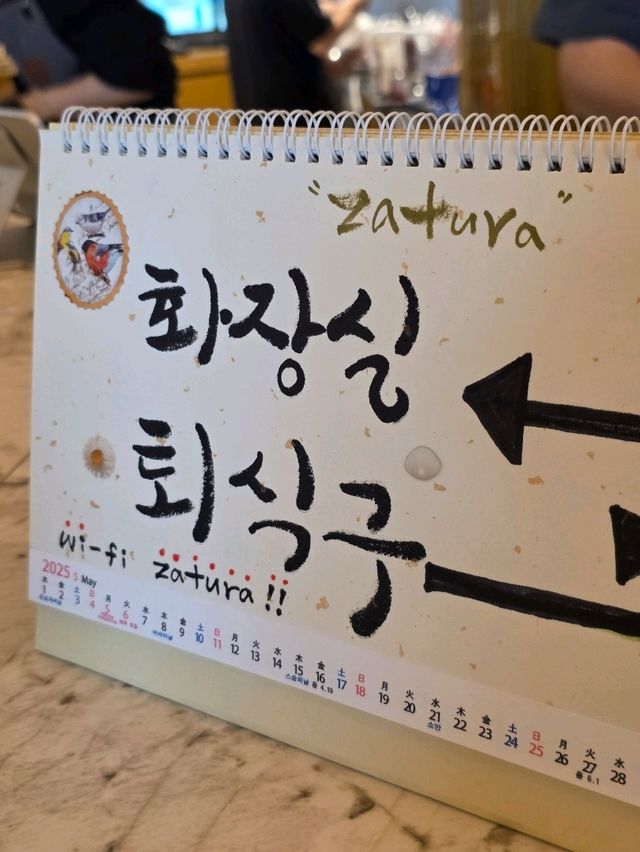 "zatura"
화장실
퇴식구
wi-fi zatura!!
2025 5 May
木 金 土 日 月 火 水 木 金 土 日 月 火 水 木 金 土 日 月 火 水 木 金 土 日 月 火 水
1 2 3 4 5 6 7 8 9 10 11 12 13 14 15 16 17 18 19 20 21 22 23 24 25 26 27 28
근로자의날 어버이날 스승의날 소만 음 5.1